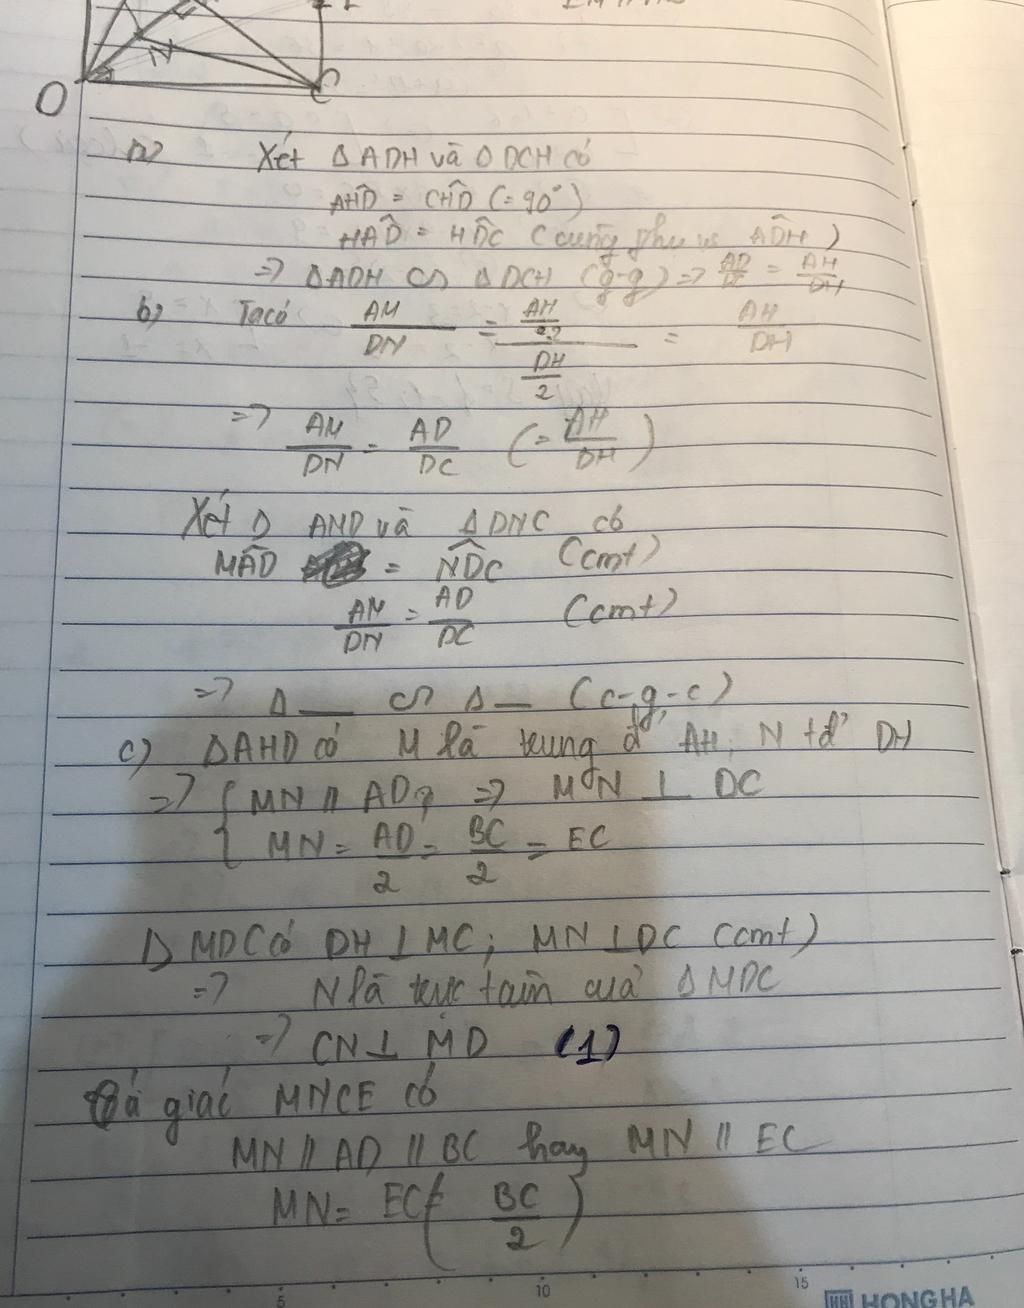 N
O
C
a) Xét Δ ADH và Δ DCH có
AĤD = CĤD (= 90°)
HÂD = HD̂C (cùng phụ vs AD̂H)
=> ΔADH ∽ ΔDCH (g-g) => AD/DC = AH/DH
b) Ta có AM/DN = (AH/2)/(DH/2) = AH/DH
=> AM/DN = AD/DC (= AH/DH)
Xét Δ AMD và Δ DNC có
MÂD = ND̂C (cmt)
AM/DN = AD/DC (cmt)
=> Δ __ ∽ Δ __ (c-g-c)
c) ΔAHD có M là trung đ' AH; N tđ' DH
=> { MN // AD => MN ⊥ DC
{ MN = AD/2 = BC/2 = EC
Δ MDC có DH ⊥ MC; MN ⊥ DC (cmt)
=> N là trực tâm của Δ MDC
=> CN ⊥ MD (1)
Tứ giác MNCE có
MN // AD // BC hay MN // EC
MN = EC (= BC/2)
5 10 15
HONG HA